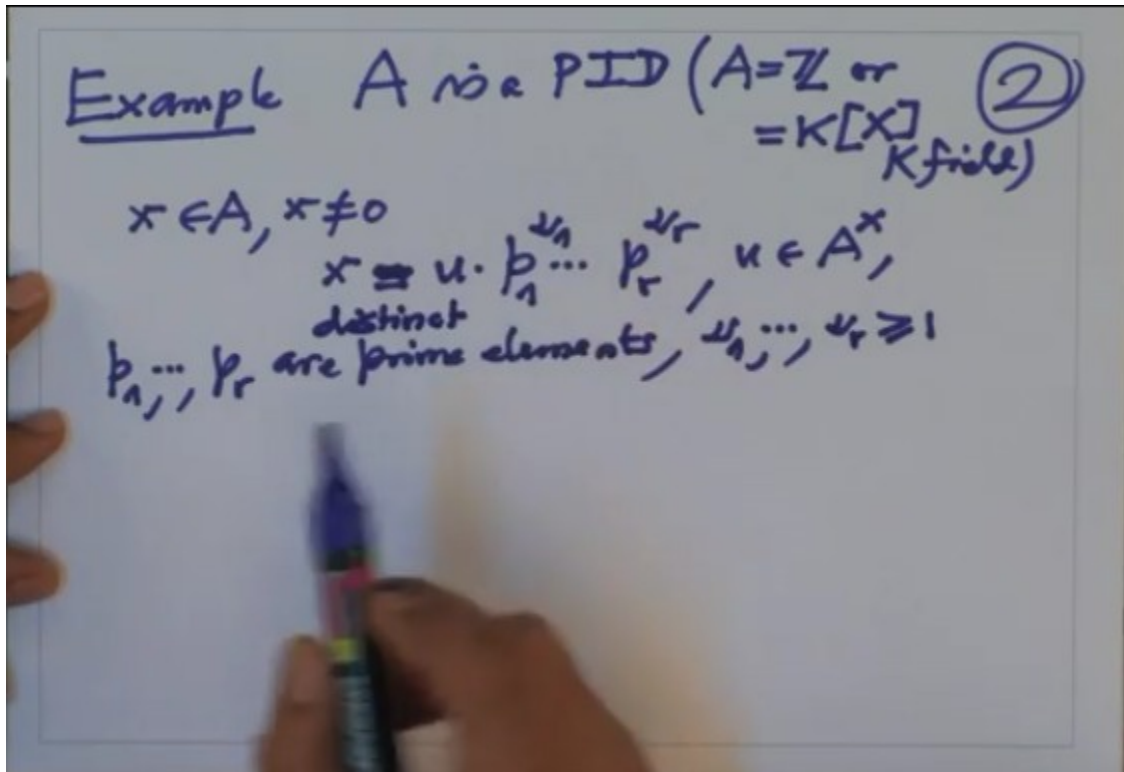 Example A is a PID (A=ℤ or
=K[X]
K field)
2
x ∈ A, x ≠ 0
x = u · p₁^ν₁ ⋯ pᵣ^νᵣ, u ∈ A^×,
distinct
p₁, ⋯, pᵣ are prime elements, ν₁, ⋯, νᵣ ≥ 1